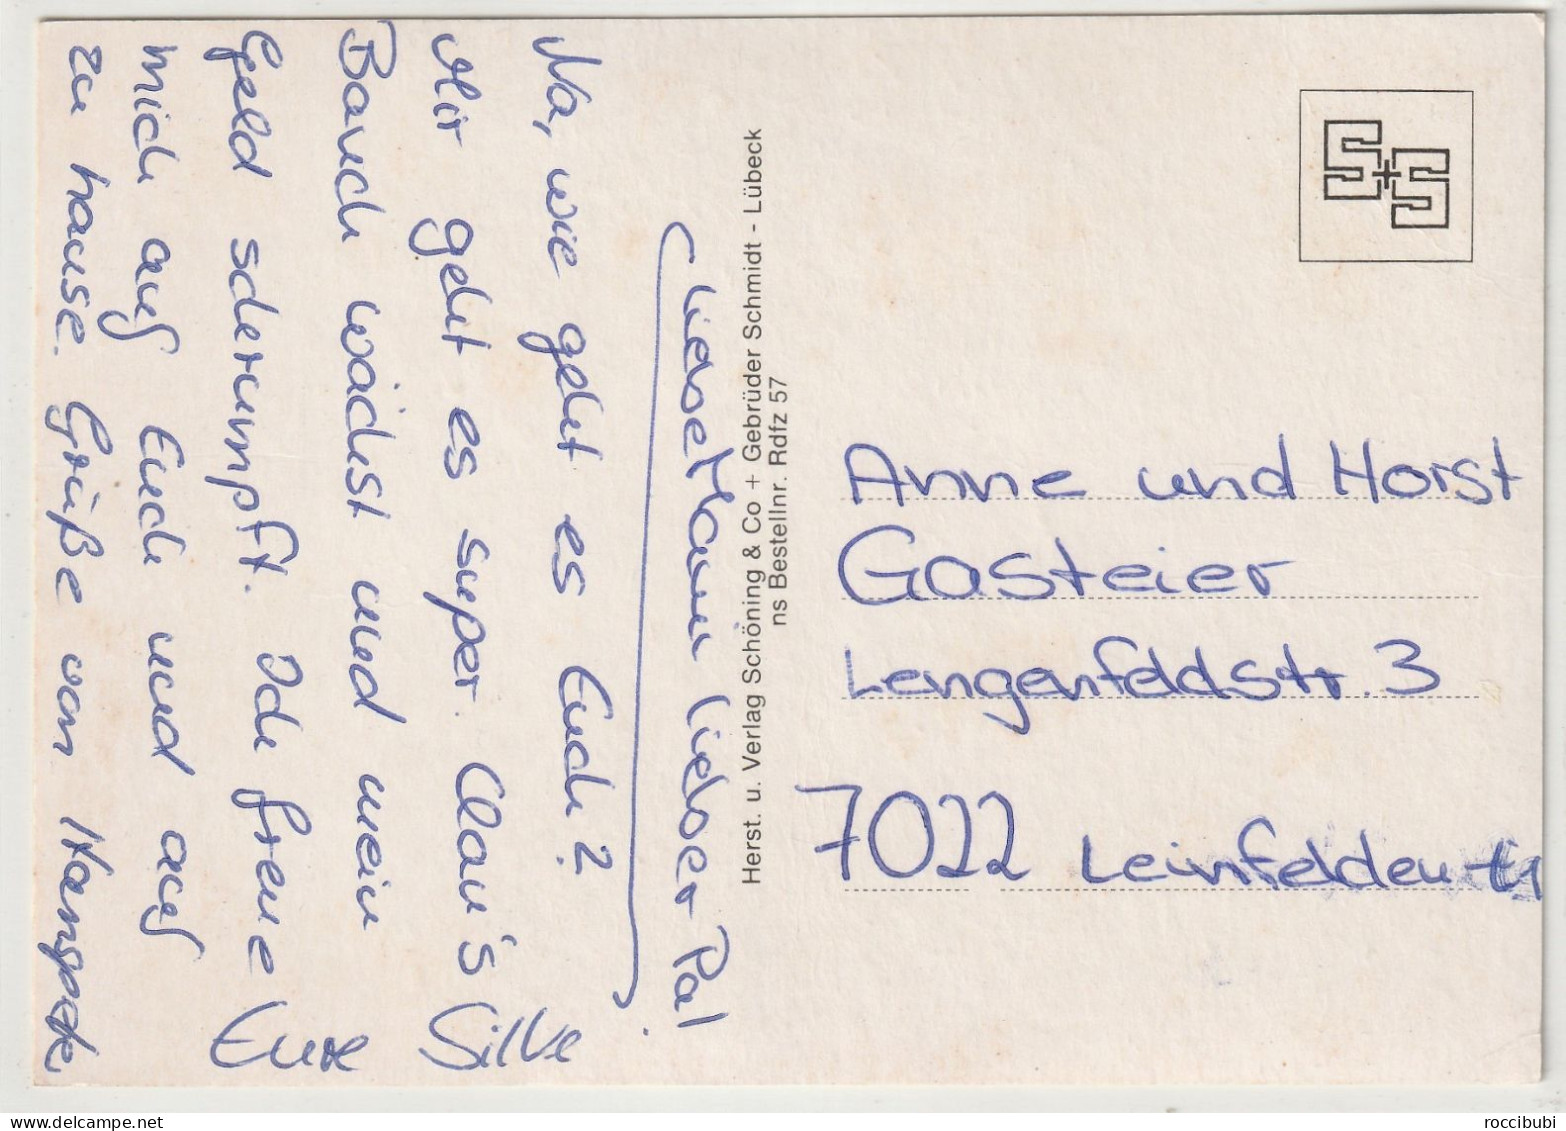 Liese Mam lieber Pa!
Na, wie geht es Euch?
Mir geht es super. Clau's
Bauch wächst und mein
Geld schrumpft. Ich freue
mich auf Euch und auf
zu hause. Grüße von Hanspeter
Eure Silke
Herst. u. Verlag Schöning & Co + Gebrüder Schmidt - Lübeck
ns Bestellnr. Rdfz 57
S+S
Anne und Horst
Gasteier
Lengenfeldstr. 3
7022 Leinfelden
roccibubi